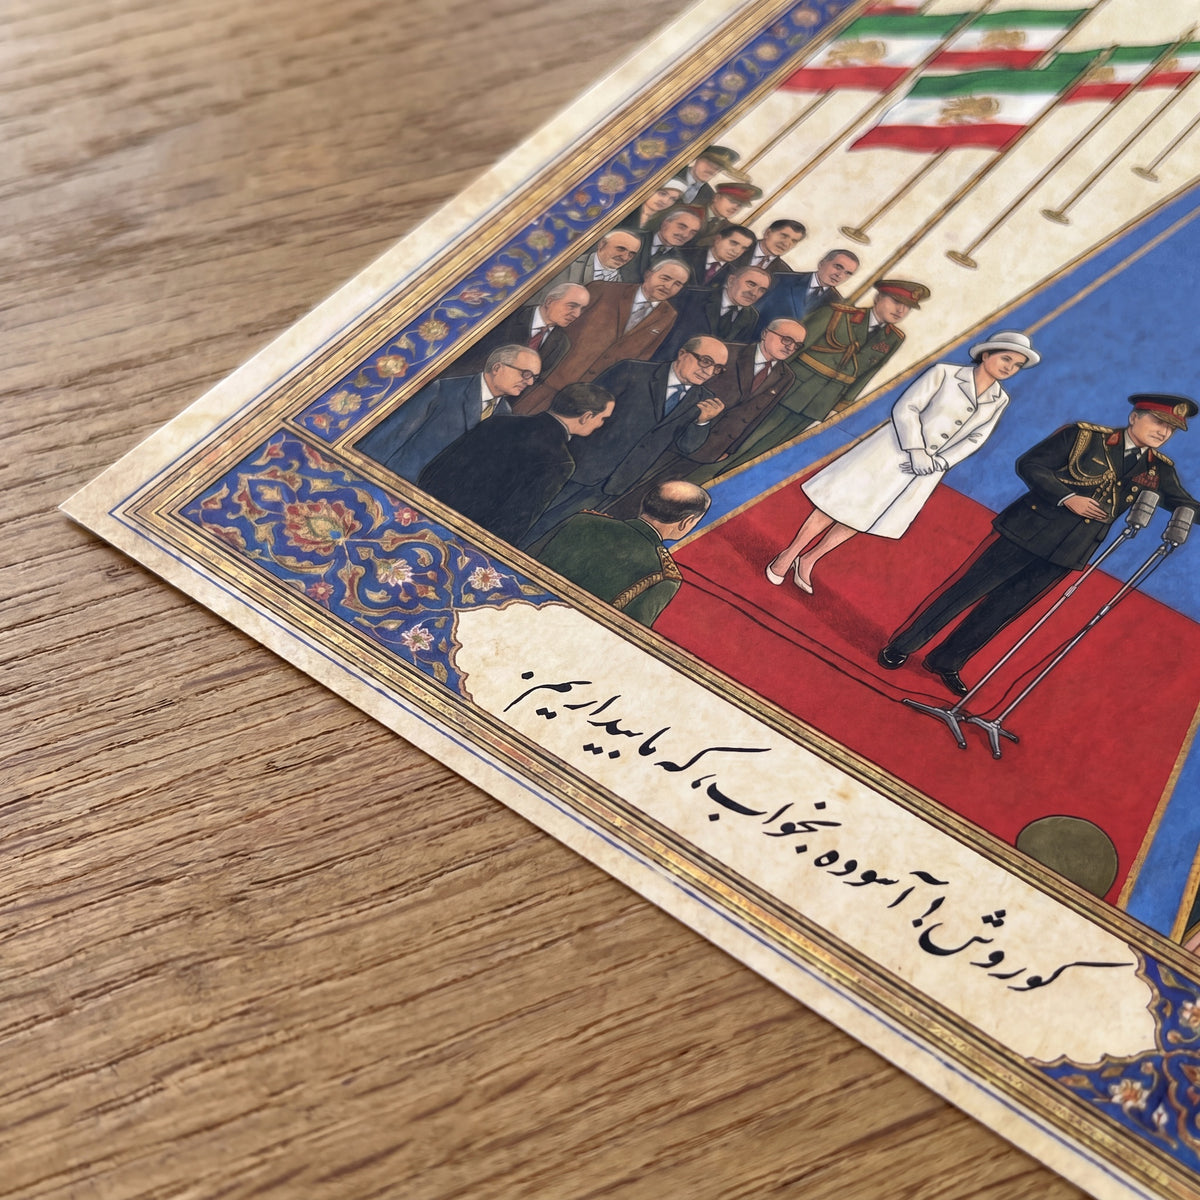 کوروش! آسوده بخواب، که ما بیداریم.